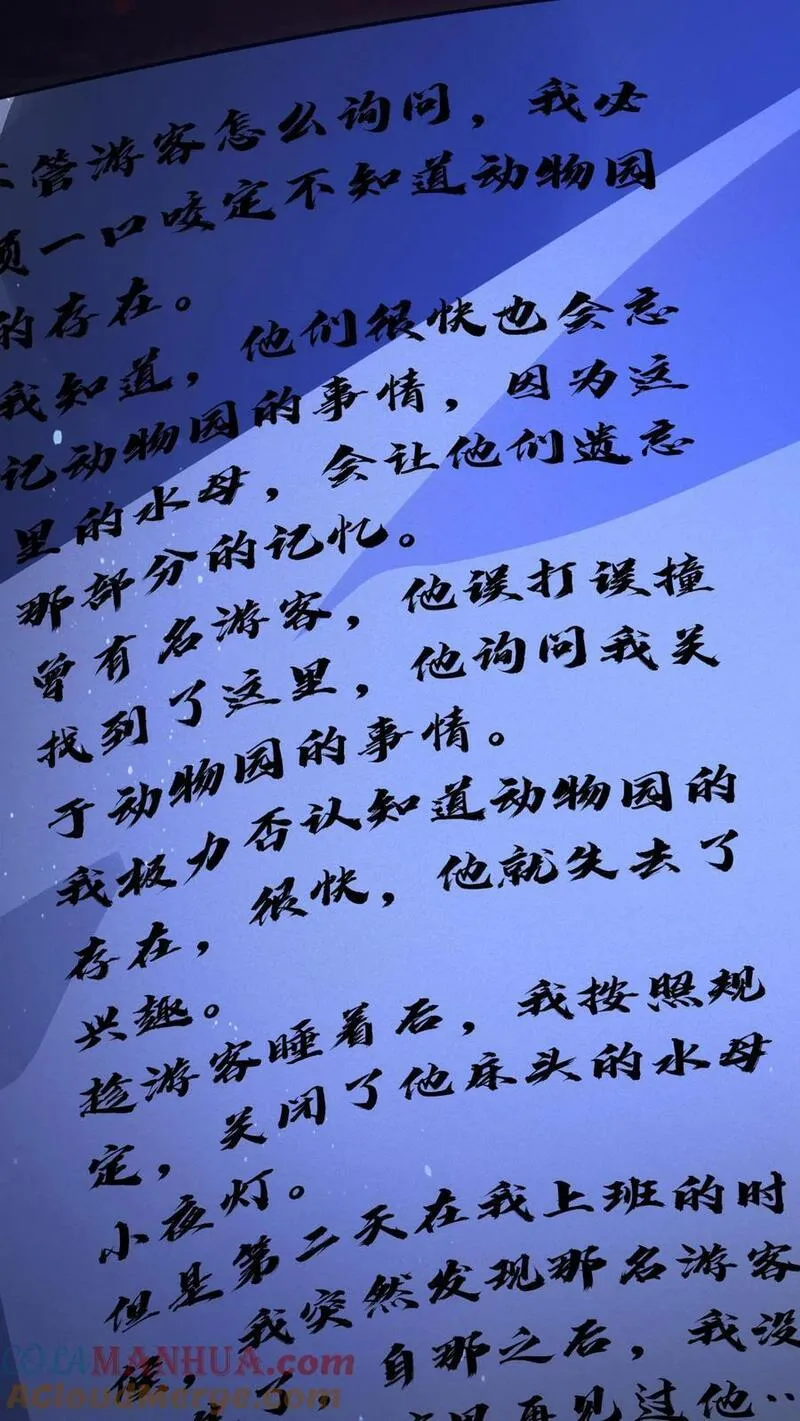 管游客怎么询问，我必
须一口咬定不知道动物园
的存在。
我知道，他们很快也会忘
记动物园的事情，因为这
里的水母，会让他们遗忘
那部分的记忆。
曾有名游客，他误打误撞
找到了这里，他询问我关
于动物园的事情。
我极力否认知道动物园的
存在，很快，他就失去了
兴趣。
趁游客睡着后，我按照规
定，关闭了他床头的水母
小夜灯。
但是第二天在我上班的时
候，我突然发现那名游客
了，自那之后，我没
再见过他…
COLAMANHUA.com
ACloudMerge.com